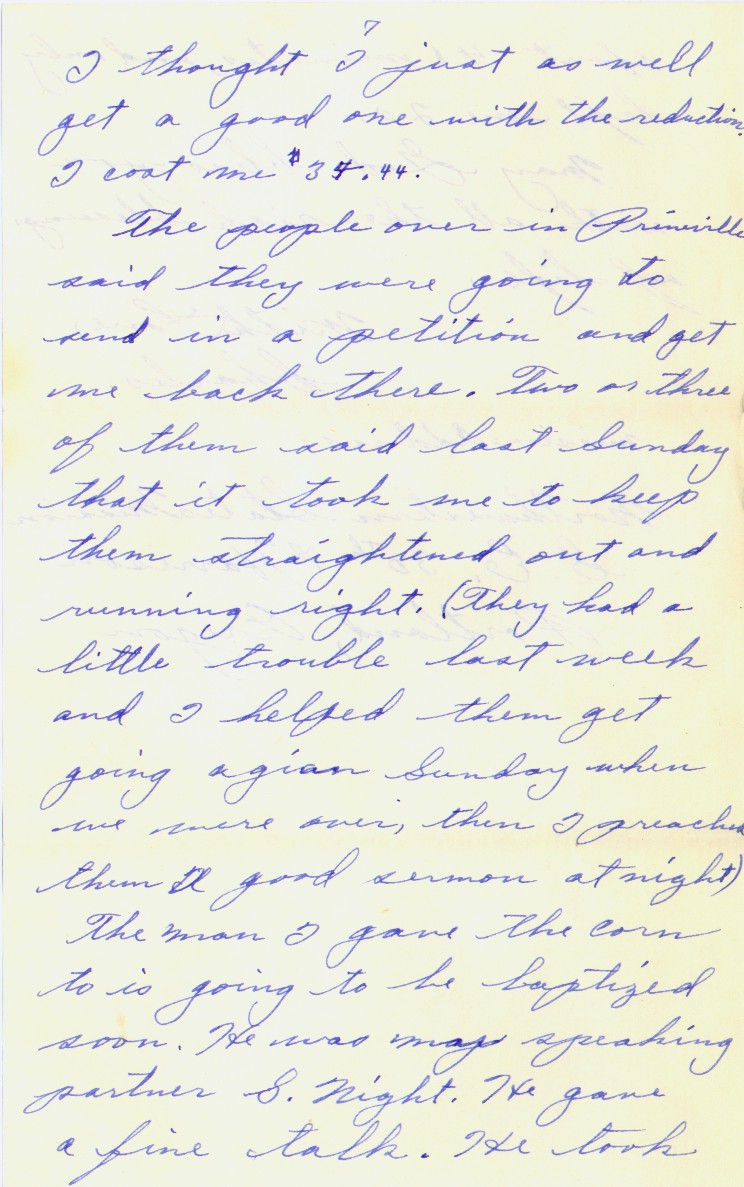 7
I thought I just as well
get a good one with the reduction.
I cost me $34.44.
The people over in Prineville
said they were going to
send in a petition and get
me back there. Two or three
of them said last Sunday
that it took me to keep
them straightened out and
running right. (They had a
little trouble last week
and I helped them get
going agian Sunday when
we were over, then I preached
them a good sermon at night)
The man I gave the corn
to is going to be baptized
soon. He was my speaking
partner S. Night. He gave
a fine talk. He took